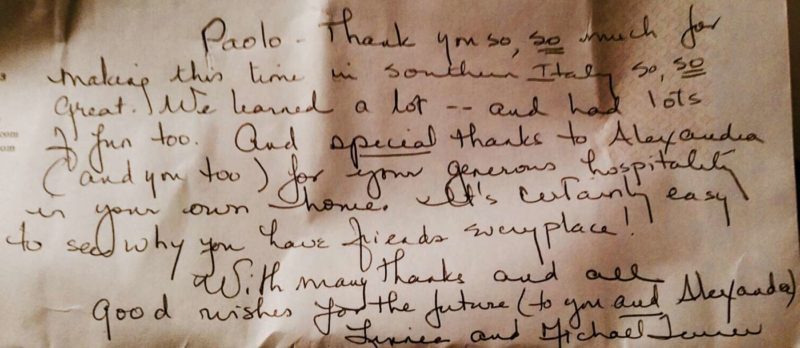 Paolo - Thank you so, so much for
making this time in southern Italy so, so
great. We learned a lot -- and had lots
of fun too. And special thanks to Alexandra
(and you too) for your generous hospitality
in your own home. It's certainly easy
to see why you have friends everyplace!
With many thanks and all
good wishes for the future (to you and Alexandra)
Linnea and Michael
com
om